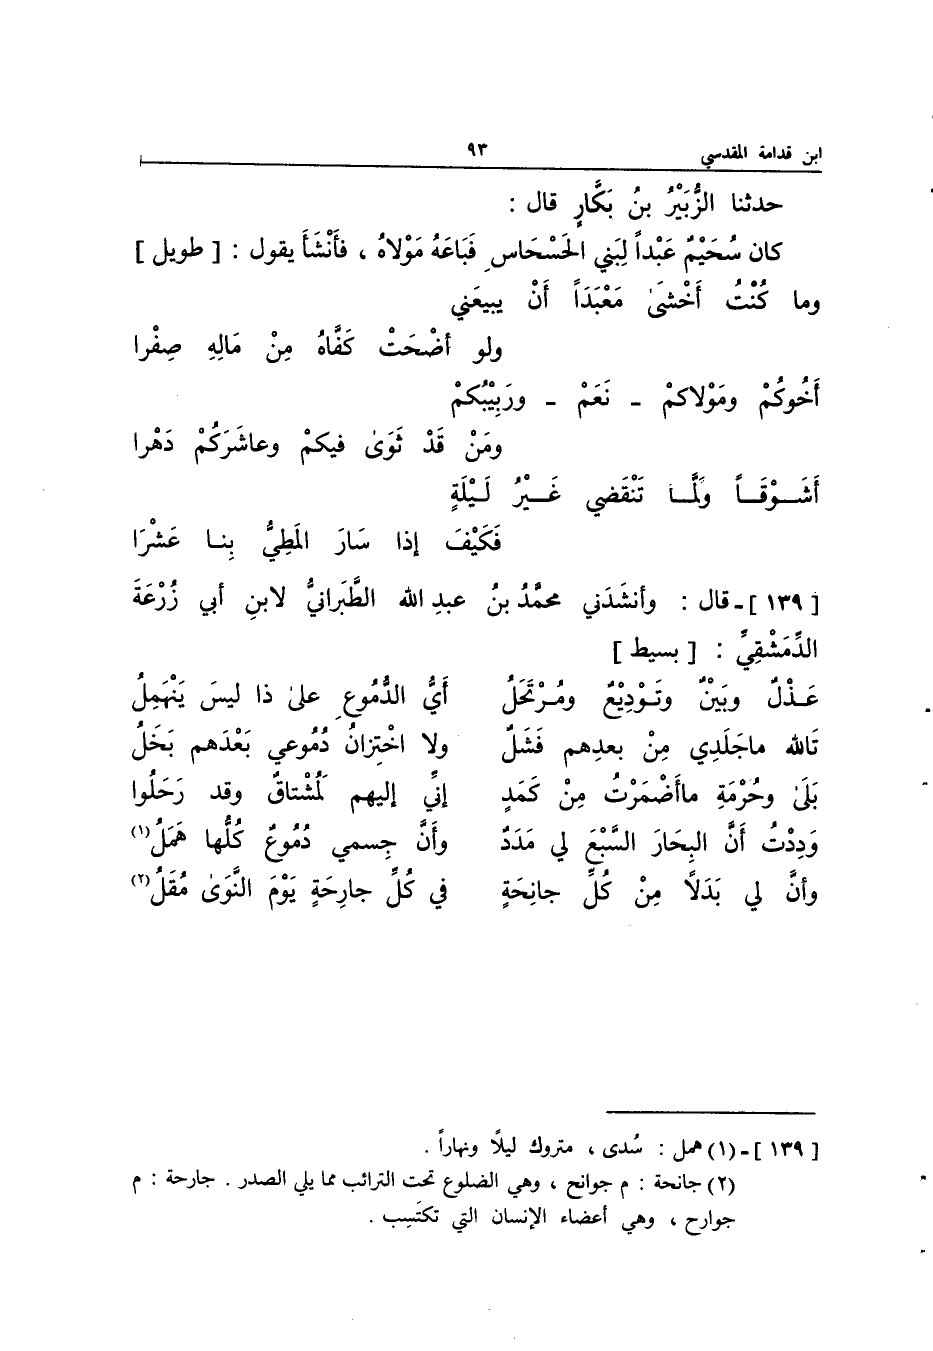 ابن قدامة المقدسي ٩٣
حدثنا الزُّبَيْرُ بنُ بَكَّارٍ قال :
كان سُحَيْمُ عَبْداً لِبَني الحَسْحَاسِ فَبَاعَهُ مَوْلاهُ ، فأَنْشَأَ يقول : [ طويل ]
وما كُنْتُ أَخْشىٰ مَعْبَدَاً أَنْ يبيعَني
ولو أضْحَتْ كَفَّاهُ مِنْ مَالِهِ صِفْرا
أَخُوكُمْ ومَوْلاكمْ ـ نَعَمْ ـ ورَبِيْبُكمْ
ومَنْ قَدْ ثَوَىٰ فيكمْ وعاشَرَكُمْ دَهْرا
أَشَـــوْقَـــاً ولَمَّـــا تَنْقَضي غَـــيْرُ لَـيْلَةٍ
فَكَيْفَ إذا سَارَ المَطِيُّ بِنـا عَشْرَا
[ ١٣٩ ] ـ قال : وأنشَدَني محمَّدُ بنُ عبدِ الله الطَّبَرانيُّ لابنِ أبي زُرْعَةَ
الدِّمَشْقِيِّ : [ بسيط ]
عَـذْلٌ وبَيْنٌ وتَـوْدِيْعٌ ومُـرْتَحَلُ أَيُّ الدُّمُوعِ علىٰ ذا ليسَ يَنْهَمِلُ
تَالله ماجَلَدِي مِنْ بعدِهم فَشَلٌ ولا اخْتِزانُ دُمُوعي بَعْدَهم بَخَلُ
بَلَىٰ وحُرْمَةِ ماأَضْمَرْتُ مِنْ كَمَدٍ إنِّي إليهم لَمُشْتاقٌ وقد رَحَلُوا
وَدِدْتُ أَنَّ البِحَارَ السَّبْعَ لي مَدَدٌ وأَنَّ جِسمي دُمُوعٌ كُلُّها هَمَلُ(١)
وأنَّ لي بَدَلًا مِنْ كُلِّ جانِحَةٍ في كُلِّ جارِحَةٍ يَوْمَ النَّوَىٰ مُقَلُ(٢)
[ ١٣٩ ] ـ (١) همل : سُدى ، متروك ليلًا ونهاراً .
(٢) جانحة : م جوانح ، وهي الضلوع تحت الترائب مما يلي الصدر . جارحة : م
جوارح ، وهي أعضاء الإنسان التي تكتَسِب .